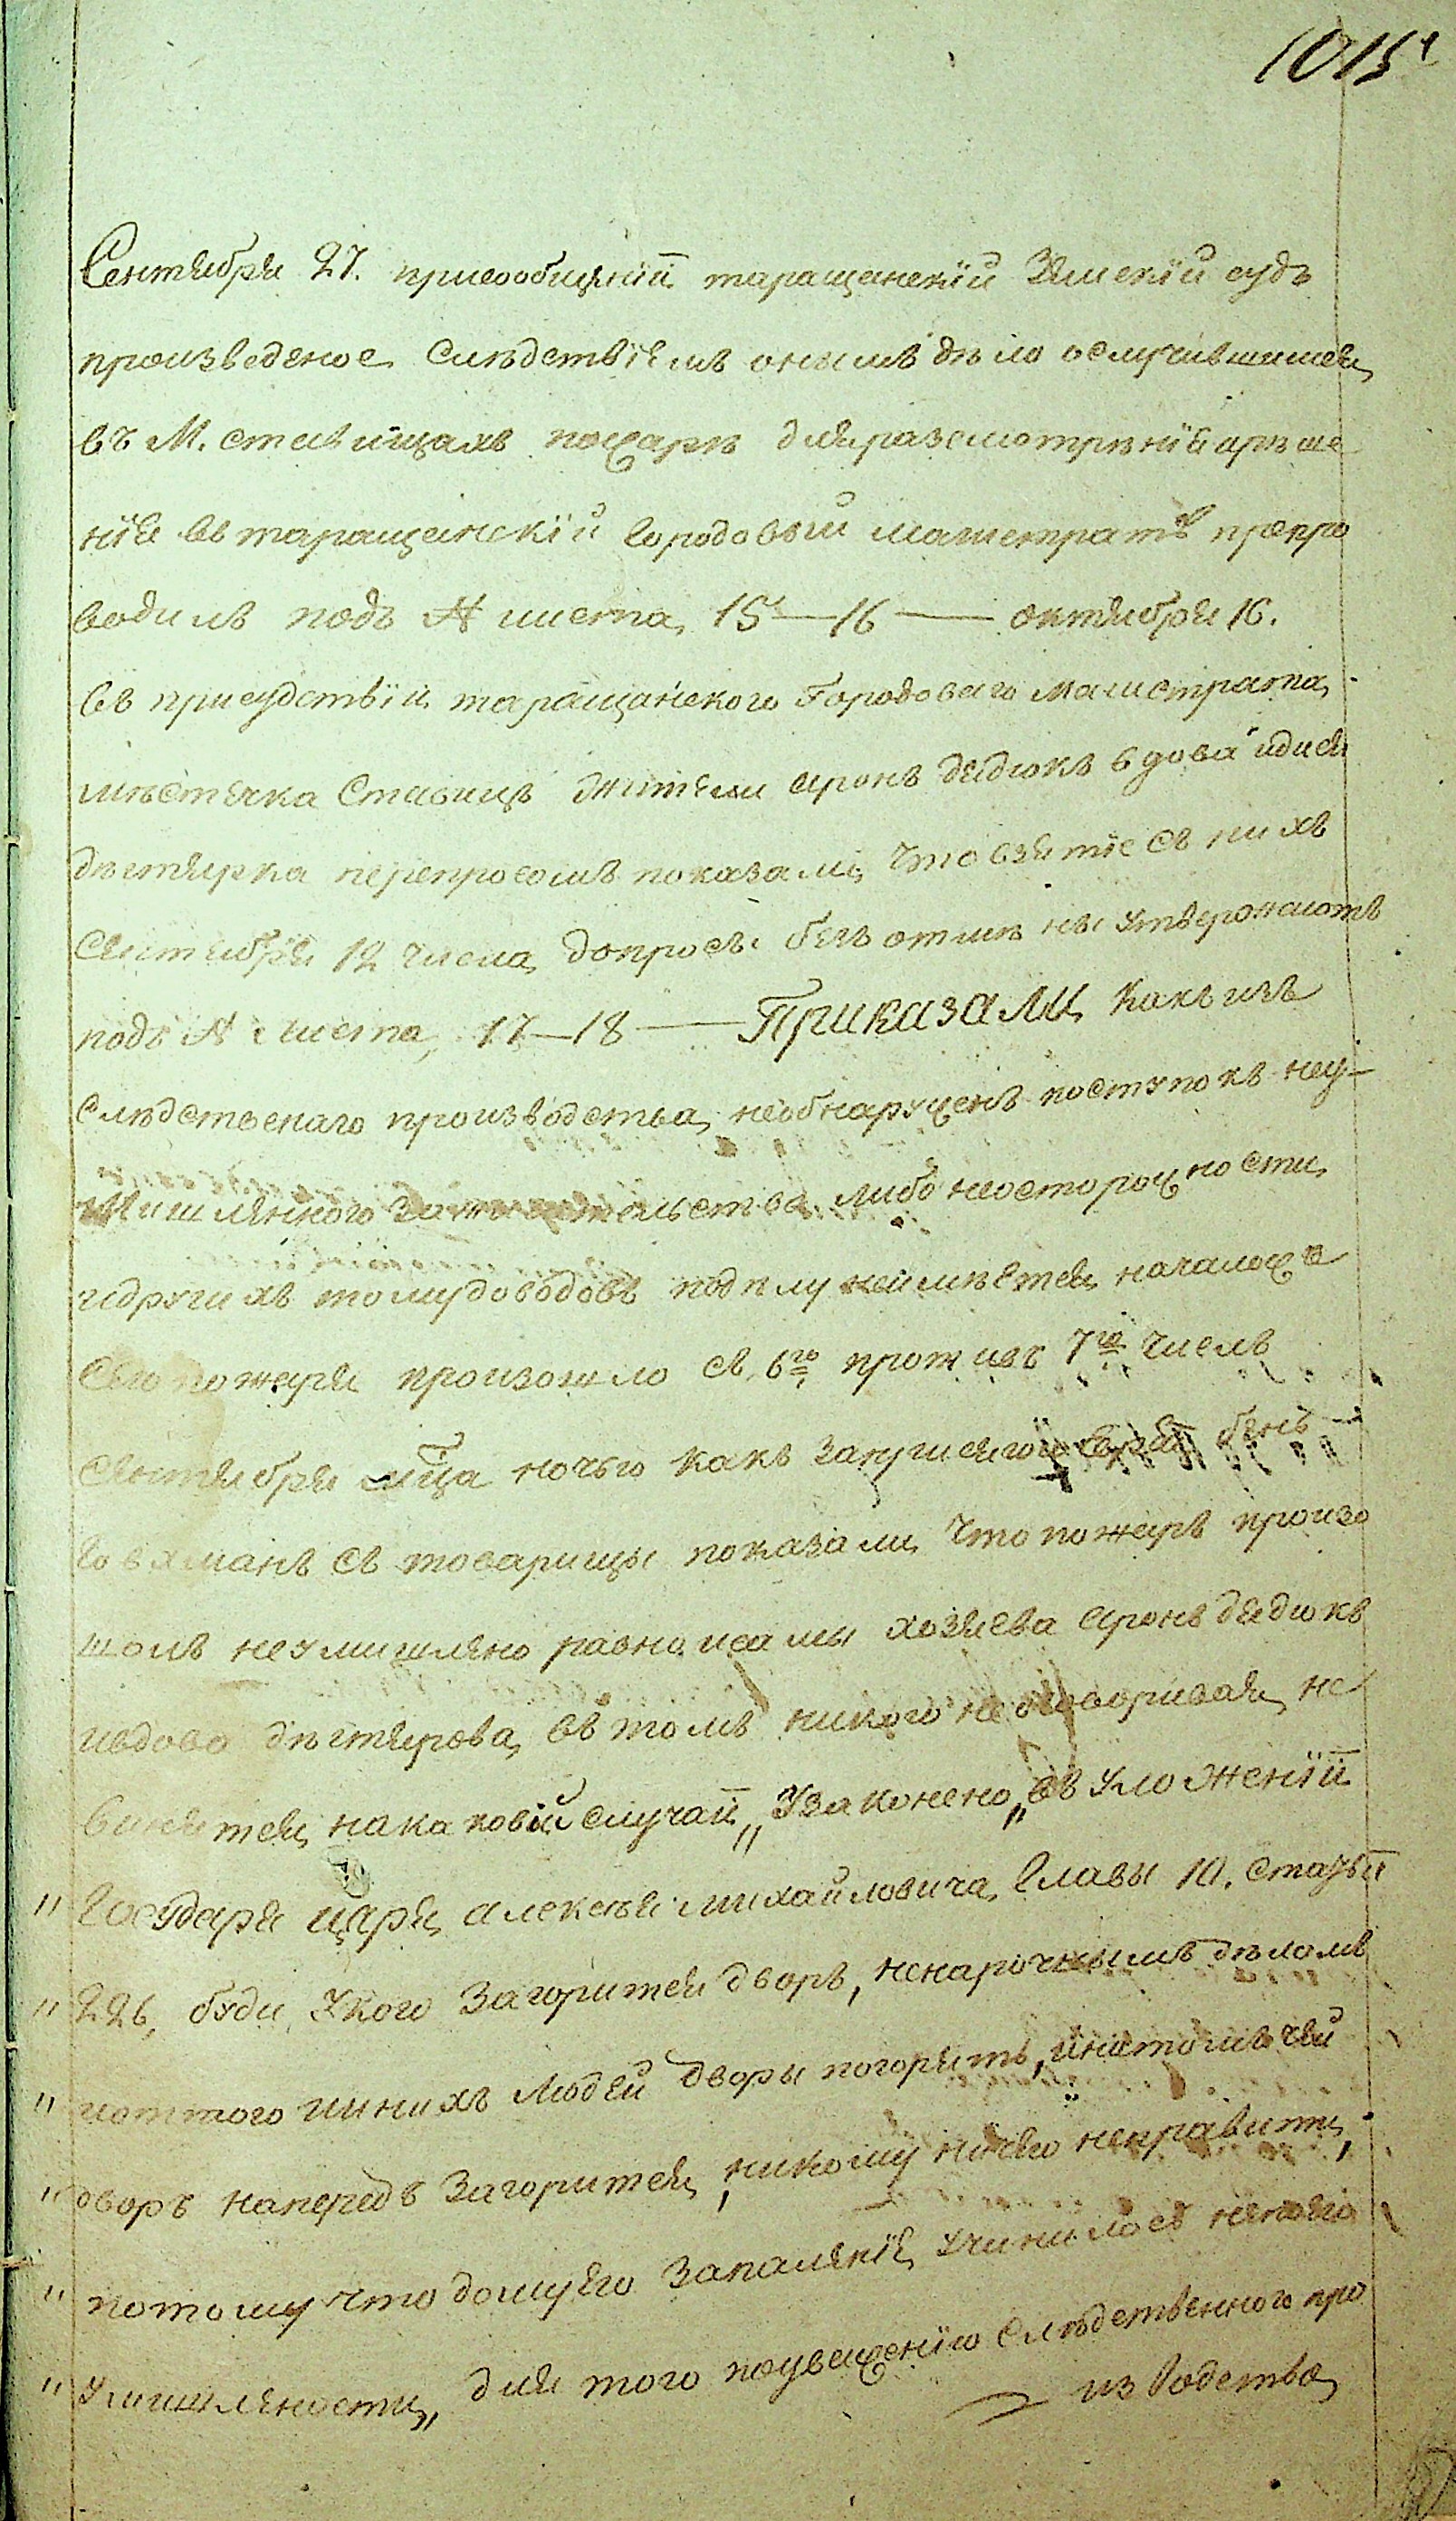 1015
Сентября 27. присообщеній таращанскій Земскій судъ
произведеное Слѣдствіемъ онымъ дѣло ослучившимся
въ М. ставищахъ пожарѣ для разсмотренія ирѣше
нія въ таращанскій Городовый магистратъ препро
водилъ подъ № листа, 15—16 — октября 16.
Въ присудствіи таращанского Городоваго магистрата,
мѣстечка Ставищъ жители Аронъ дядюкъ вдова
дѣгтярка перепросомъ показали, что взятіе съ нихъ
Сентября 12 числа, допросы безъ отмѣны утверждаютъ
подъ № листа, 17—18 — Приказали, Какъ изъ
Слѣдственаго производства, необнаруженъ поступокъ неу-
мишлянного либо неосторожности,
идругихъ томудоводовъ подлу неимѣется, началожъ
Сего пожаря произошло съ 6го противъ 7го числъ
Сентября мца ночью Какъ бень
Говхманъ съ товарищы показали, что пожаръ произо
шолъ неумишляно равно исамы хозяева Аронъ дядюкъ
ивдова дѣгтярова, въ томъ никого неоговоривая, не
винятся, накаковій случай „ Узаконено „ въ Уложеніи
" Государя царя, алексѣя михайловича, Главы 10. статьи
" 226, буди, Укого Загорится дворъ, ненарочнымъ дѣломъ
" иоттого инихъ людей дворы погорятъ, чей
" дворъ напередъ Загорится, никому ничего неправити,
" потому что дому его Запаленіе, учинилось
" умишляности, „ для того поуваженію Слѣдственного про
изводства,